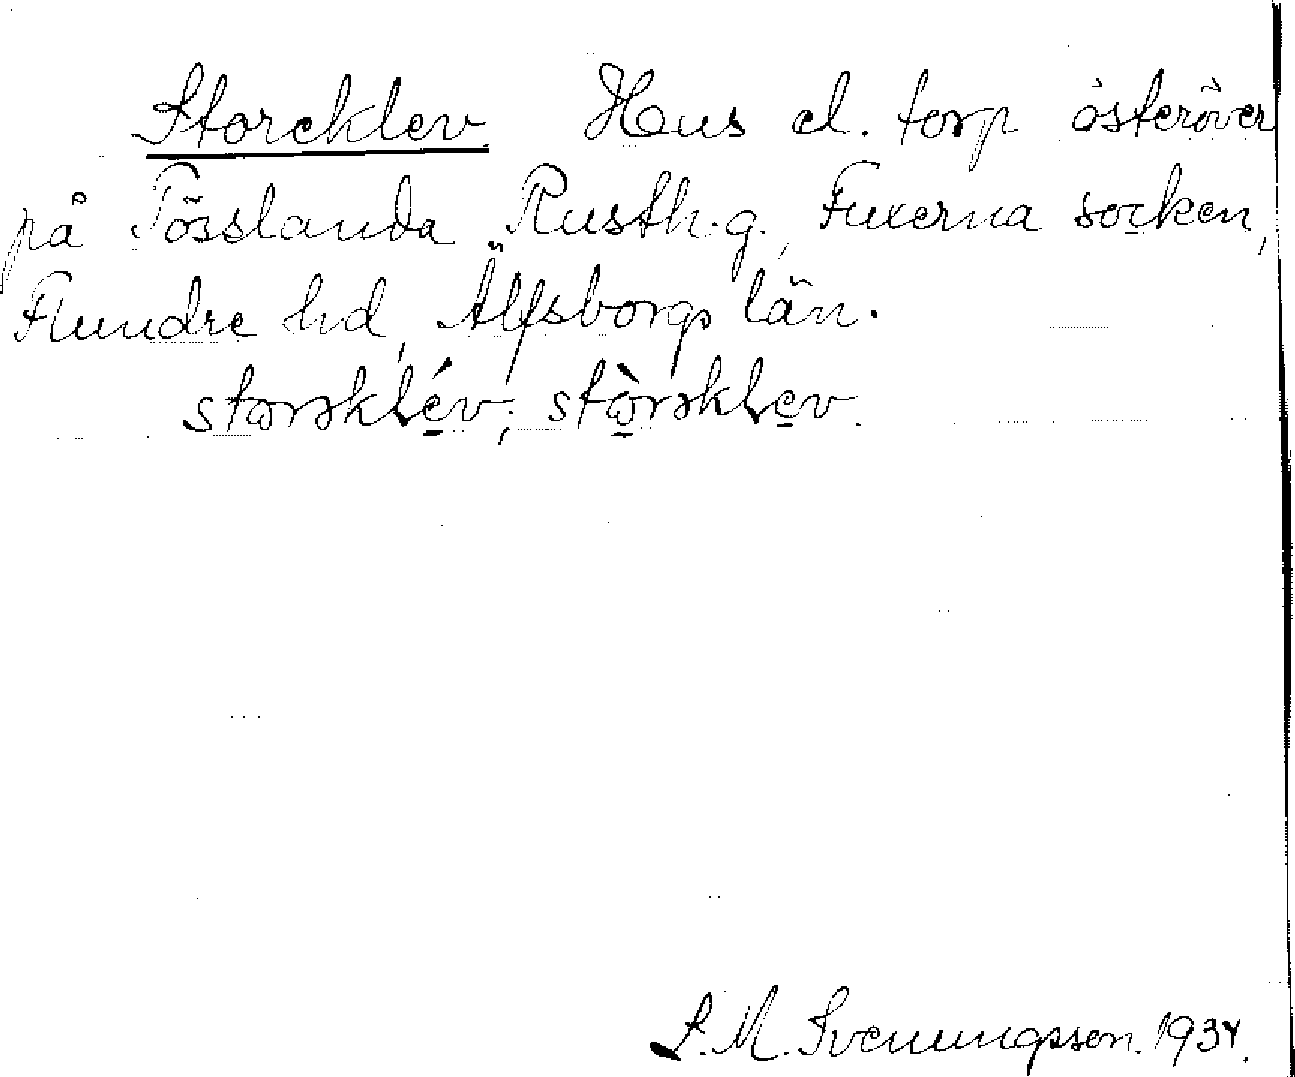 Storeklev. Hus el. torp österöver
på Tösslanda Rusth.g., Fuxerna socken,
Flundre hd, Älfsborgs län.
storəklév; stòrəklev.
L.M. Svenungsson. 1934.